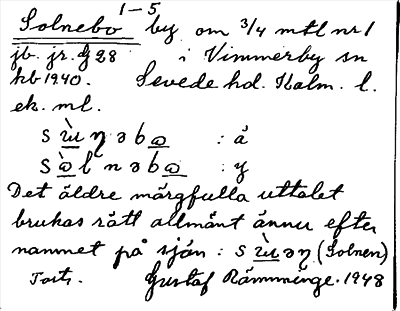 1-5
Solnebo by om 3/4 mtl nr 1
jb. jr. f 28 i Vimmerby sn
hb 1940. Sevede hd. Kalm. l.
ek. ml.
: å
: y
Det äldre märgfulla uttalet
brukas rätt allmänt ännu efter
namnet på sjön : (Solnen)
Forts. Gustaf Rämminge. 1948